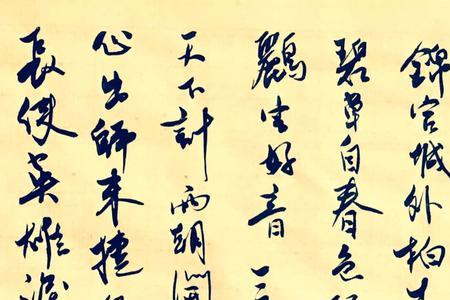 錦官城外柏
碧草自春色
鸝空好音三
天下計兩朝開
心出師未捷
長使英雄淚